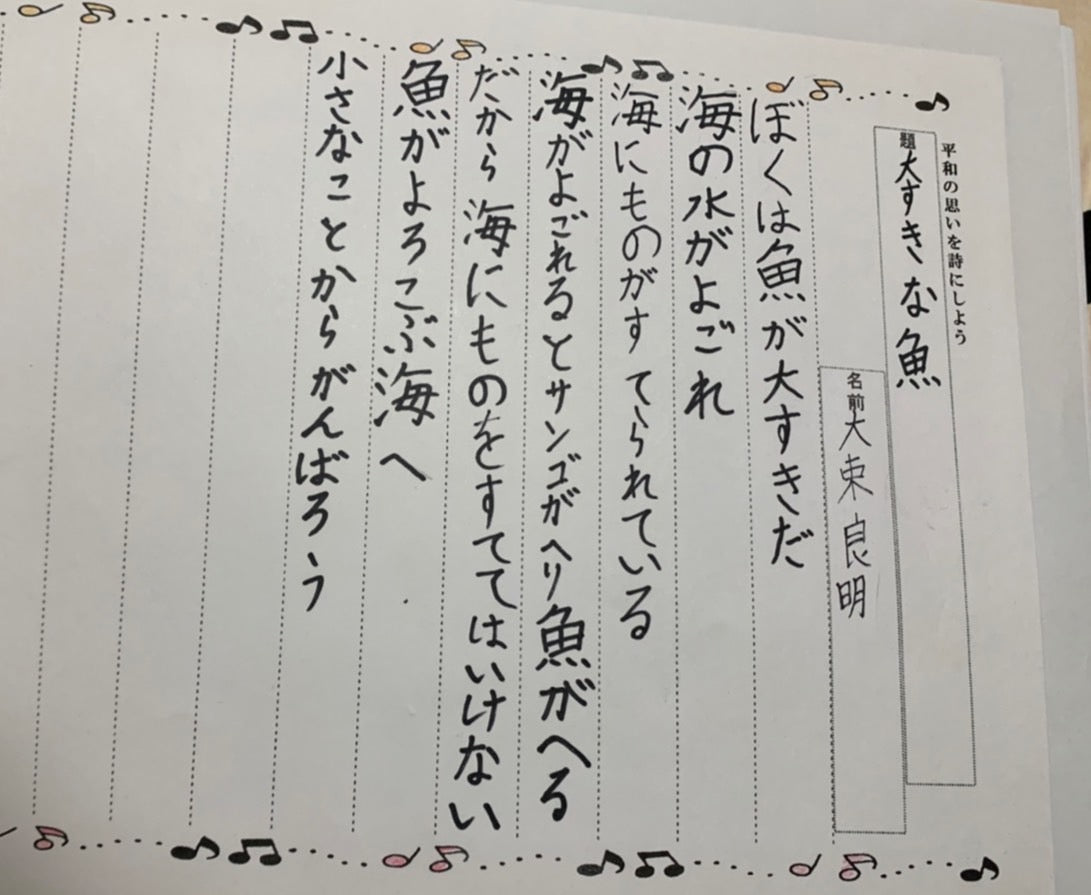 平和の思いを詩にしよう
題 大すきな魚
名前 大束良明
ぼくは魚が大すきだ
海の水がよごれ
海にものがすてられている
海がよごれるとサンゴがへり魚がへる
だから海にものをすててはいけない
魚がよろこぶ海へ
小さなことからがんばろう